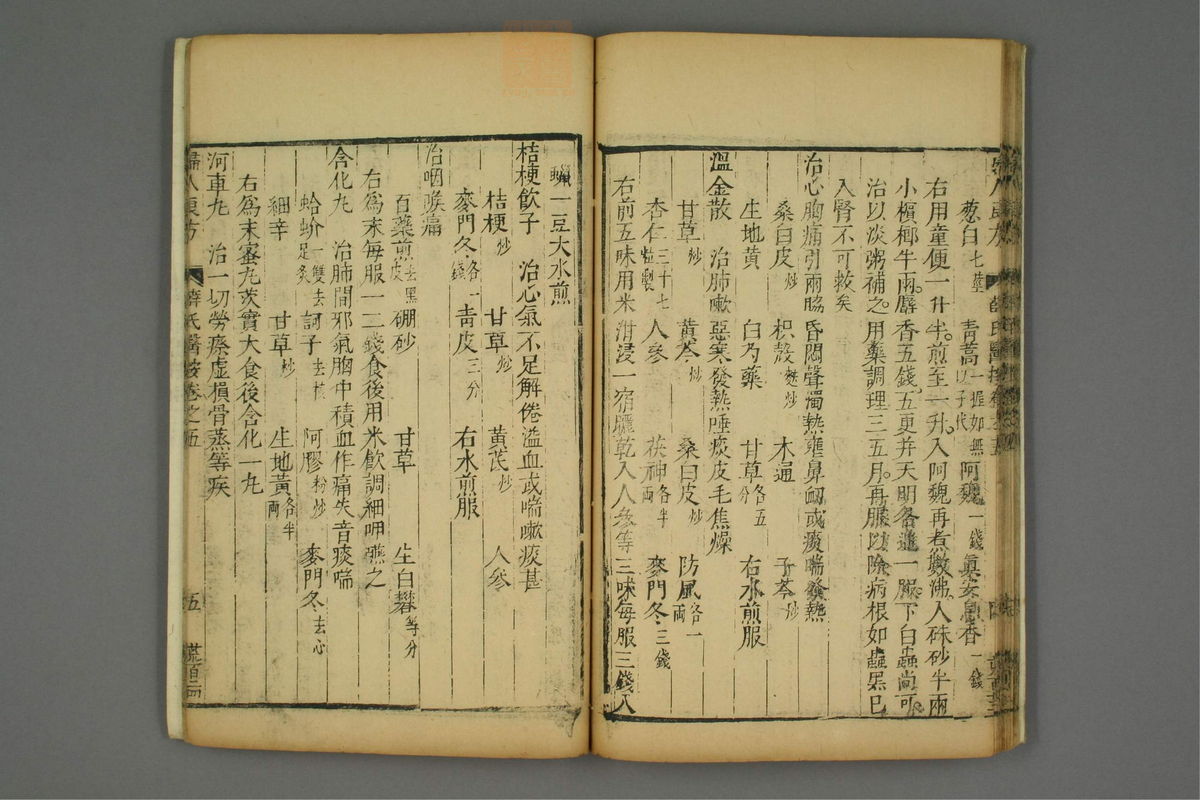 葱白七莖 青蒿一握如無以子代 阿魏一錢 真安息香一錢
右用童便一升半煎至一升入阿魏再煮數沸入硃砂半兩
小檳榔半兩麝香五錢五更并天明各進一服下白蟲尚可
治以淡粥補之用藥調理三五月再服以除病根如蟲黑已
入腎不可救矣
治心胸痛引兩脇昏悶聲濁熱壅鼻衂或痰喘發熱
桑白皮炒 枳殼麩炒 木通 子芩炒
生地黄 白芍藥 甘草各五分 右水煎服
溫金散 治肺嗽惡寒發熱唾痰皮毛焦燥
甘草炒 黄芩炒 桑白皮炒 防風各一兩
杏仁三十七粒製 人參 茯神各半兩 麥門冬三錢
右前五味用米泔浸一宿曬乾入人參等三味每服三錢入
蠟一豆大水煎
桔梗飲子 治心氣不足解倦溢血或喘嗽痰甚
桔梗炒 甘草炒 黄芪炒 人參
麥門冬各一錢 青皮三分 右水煎服
治咽喉痛
百藥煎去黑皮 硼砂 甘草 生白礬等分
右為末每服一二錢食後用米飲調細呷嚥之
含化丸 治肺間邪氣胸中積血作痛失音痰喘
蛤蚧一雙去足炙 訶子去核 阿膠粉炒 麥門冬去心
細辛 甘草炒 生地黃各半兩
右為末蜜丸芡實大食後含化一丸
河車丸 治一切勞瘵虛損骨蒸等疾
婦人良方 薛氏醫按卷之五 五